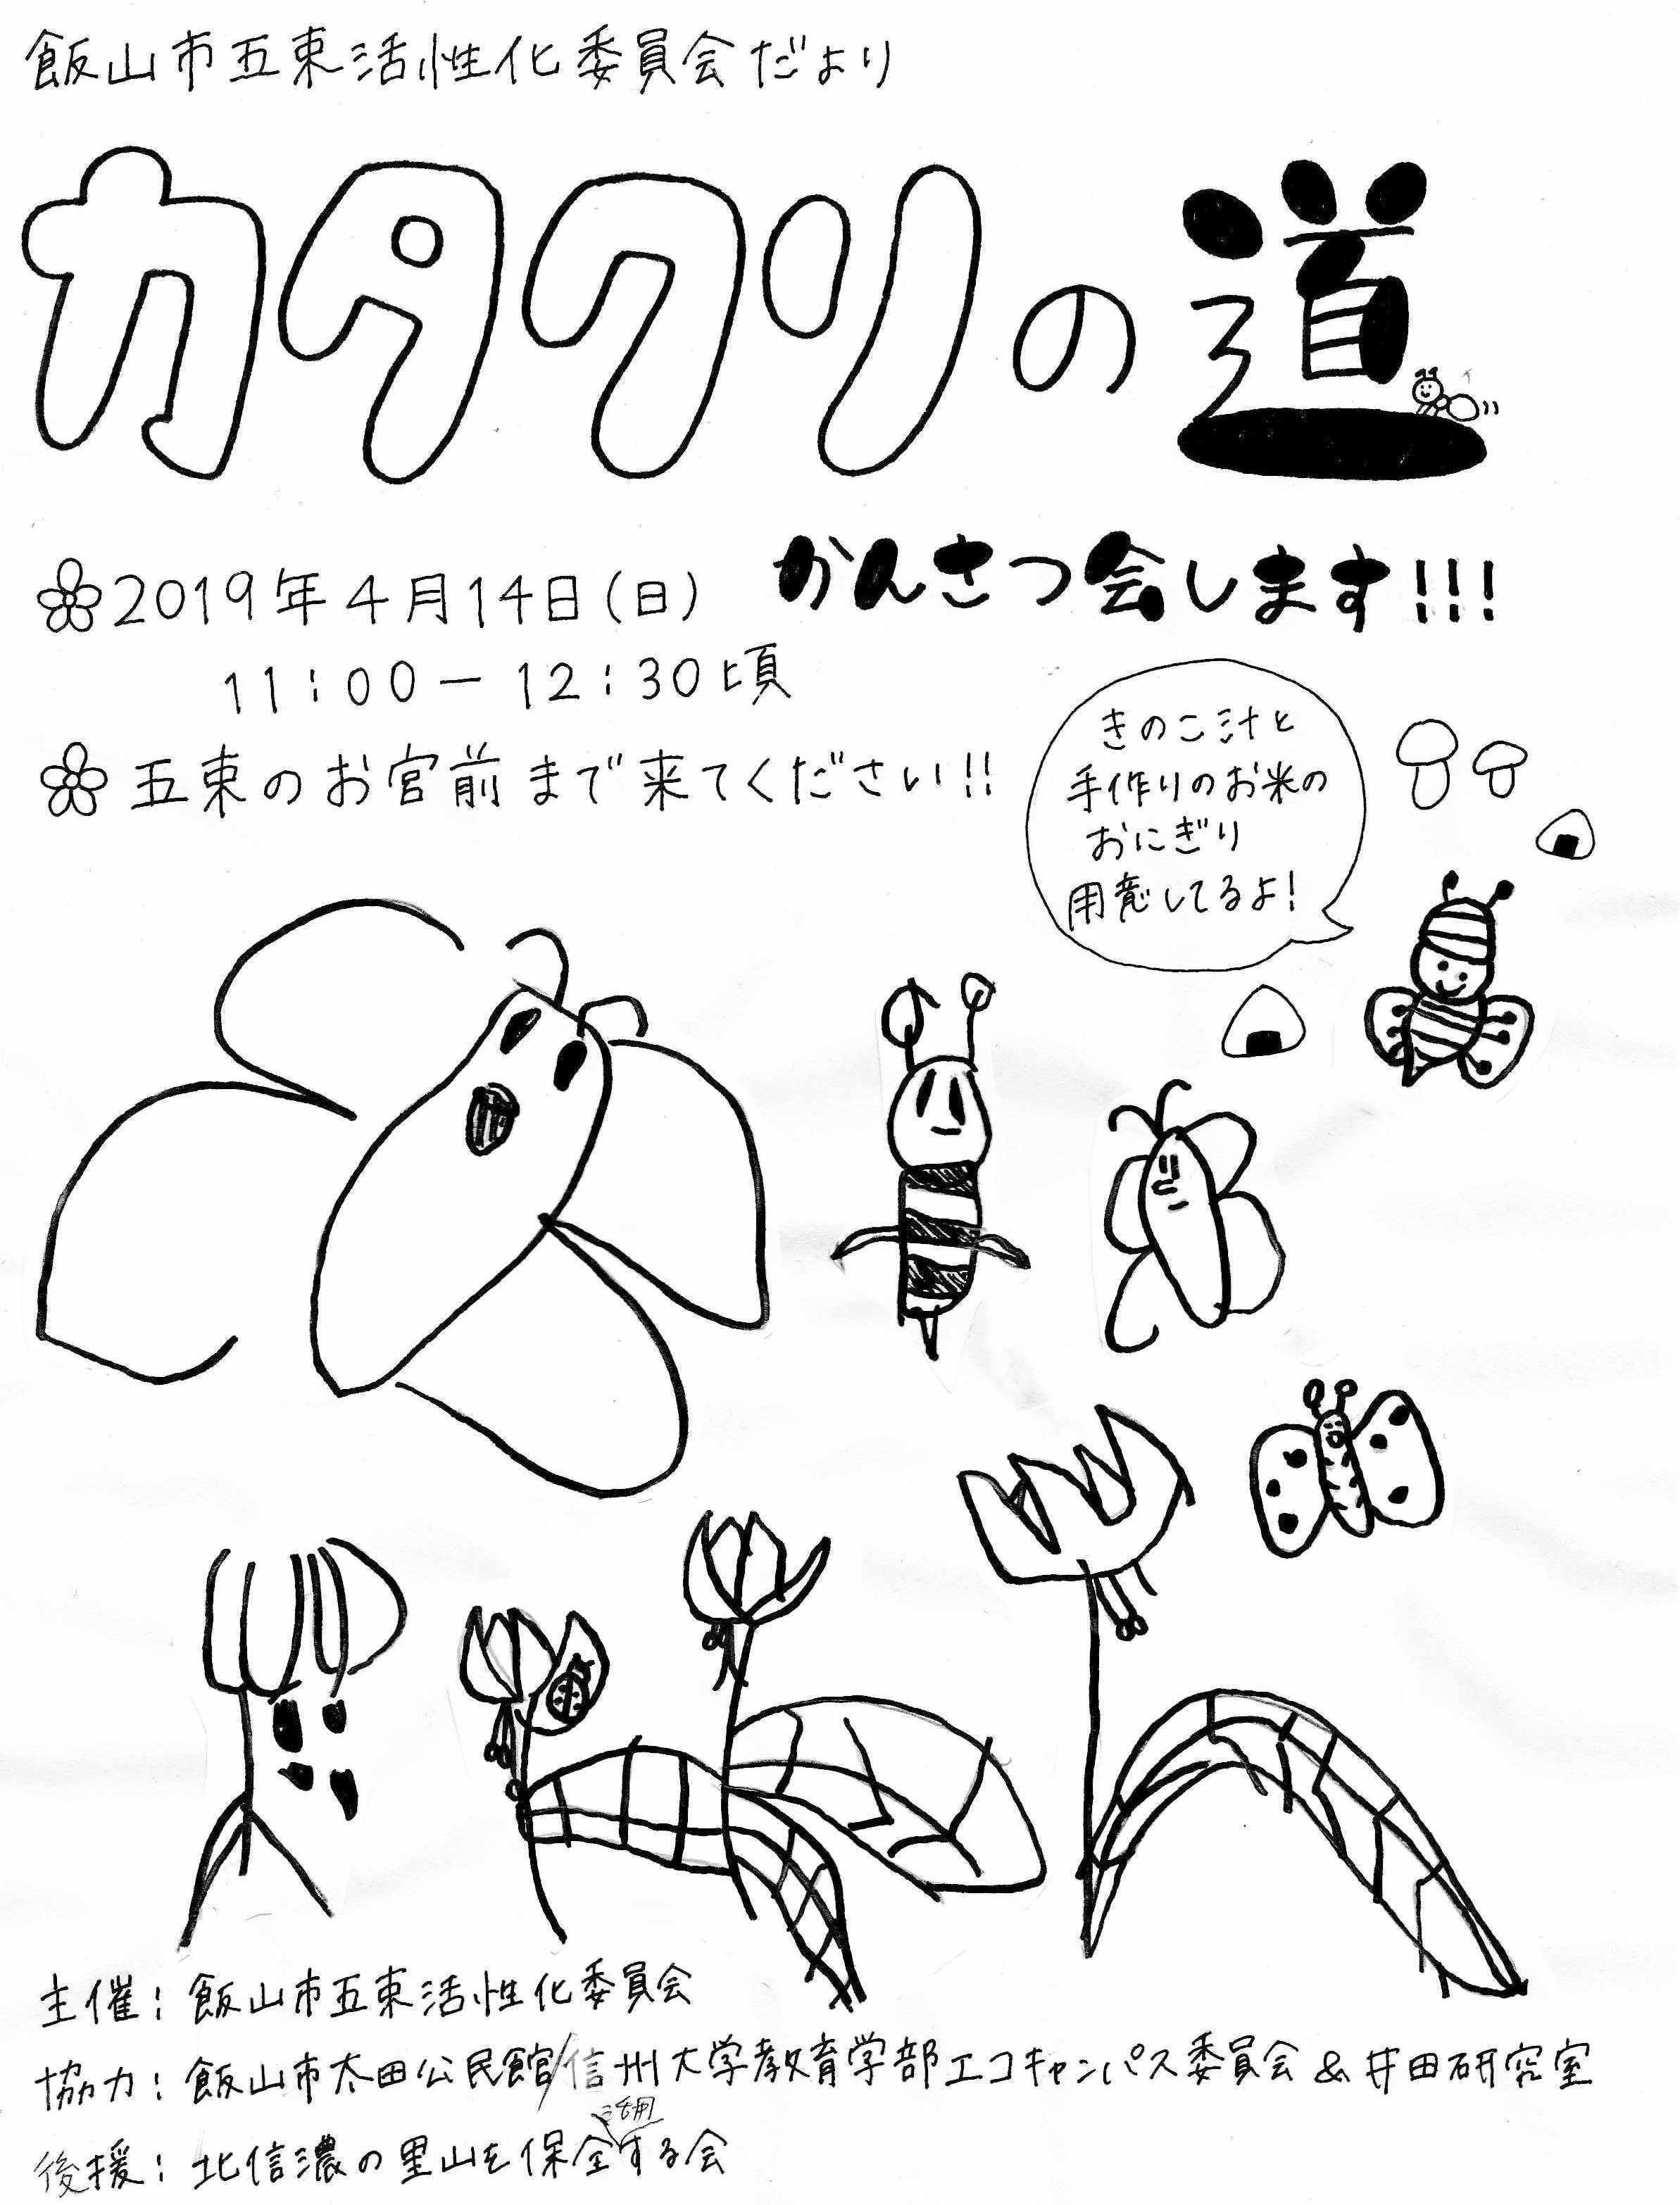 飯山市五束活性化委員会だより
カタクリの道
かんさつ会します!!!
2019年4月14日(日)
11:00ー12:30頃
五束のお宮前まで来てください!!
きのこ汁と
手作りのお米の
おにぎり
用意してるよ!
主催:飯山市五束活性化委員会
協力:飯山市太田公民館/信州大学教育学部エコキャンパス委員会&井田研究室
後援:北信濃の里山を保全活用する会